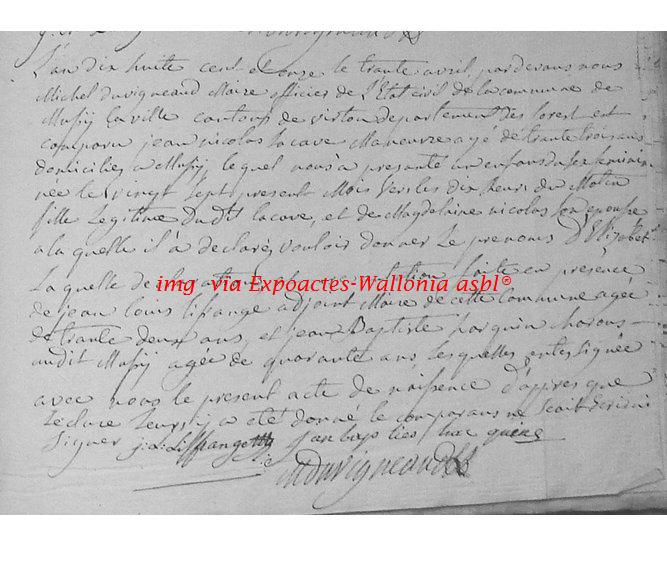 L'an dix huite cent et onze le trante avril, pardevans nous
Michel duvigneaud Maire officier de L'Etat civil de la commune de
Mussy la ville cantons de virton departement des forest est
comparu jean nicolas lacave Maneuvre agé de trante trois ans
domiciliés a Mussy, lequel nous à presanté un enfans du sex feminin
née le vingt sept present Mois vers les dix heurs du Matin
fille Legitime du dit lacave, et de Magdelaine nicolas son epouse
a la quelle il à declarés vouloir donner Le prenoms D'Elizabet
La quelle declaration et presentation faite en presence
img via Expoactes-Wallonia asbl©
de jean Louis lifrange adjoint Maire de cette Commune agée
de trante deux ans, et jean Baptiste
audit Mussy agée de quarante ans, Les quelles ontes signée
avec nous le present acte de naissence d'appres que
Lecture Leurs a eté donné le comparans ne scait Ecrire
Signer j. L. Liffrange jan bap ties
mduvigneaud